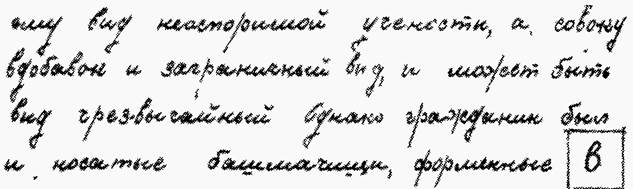 ему вид неоспоримой учености, а совоку
вдобавок и заграничный вид, и может быть
вид чрезвычайный Однако гражданин был
и носатые башмачищи, форменные в